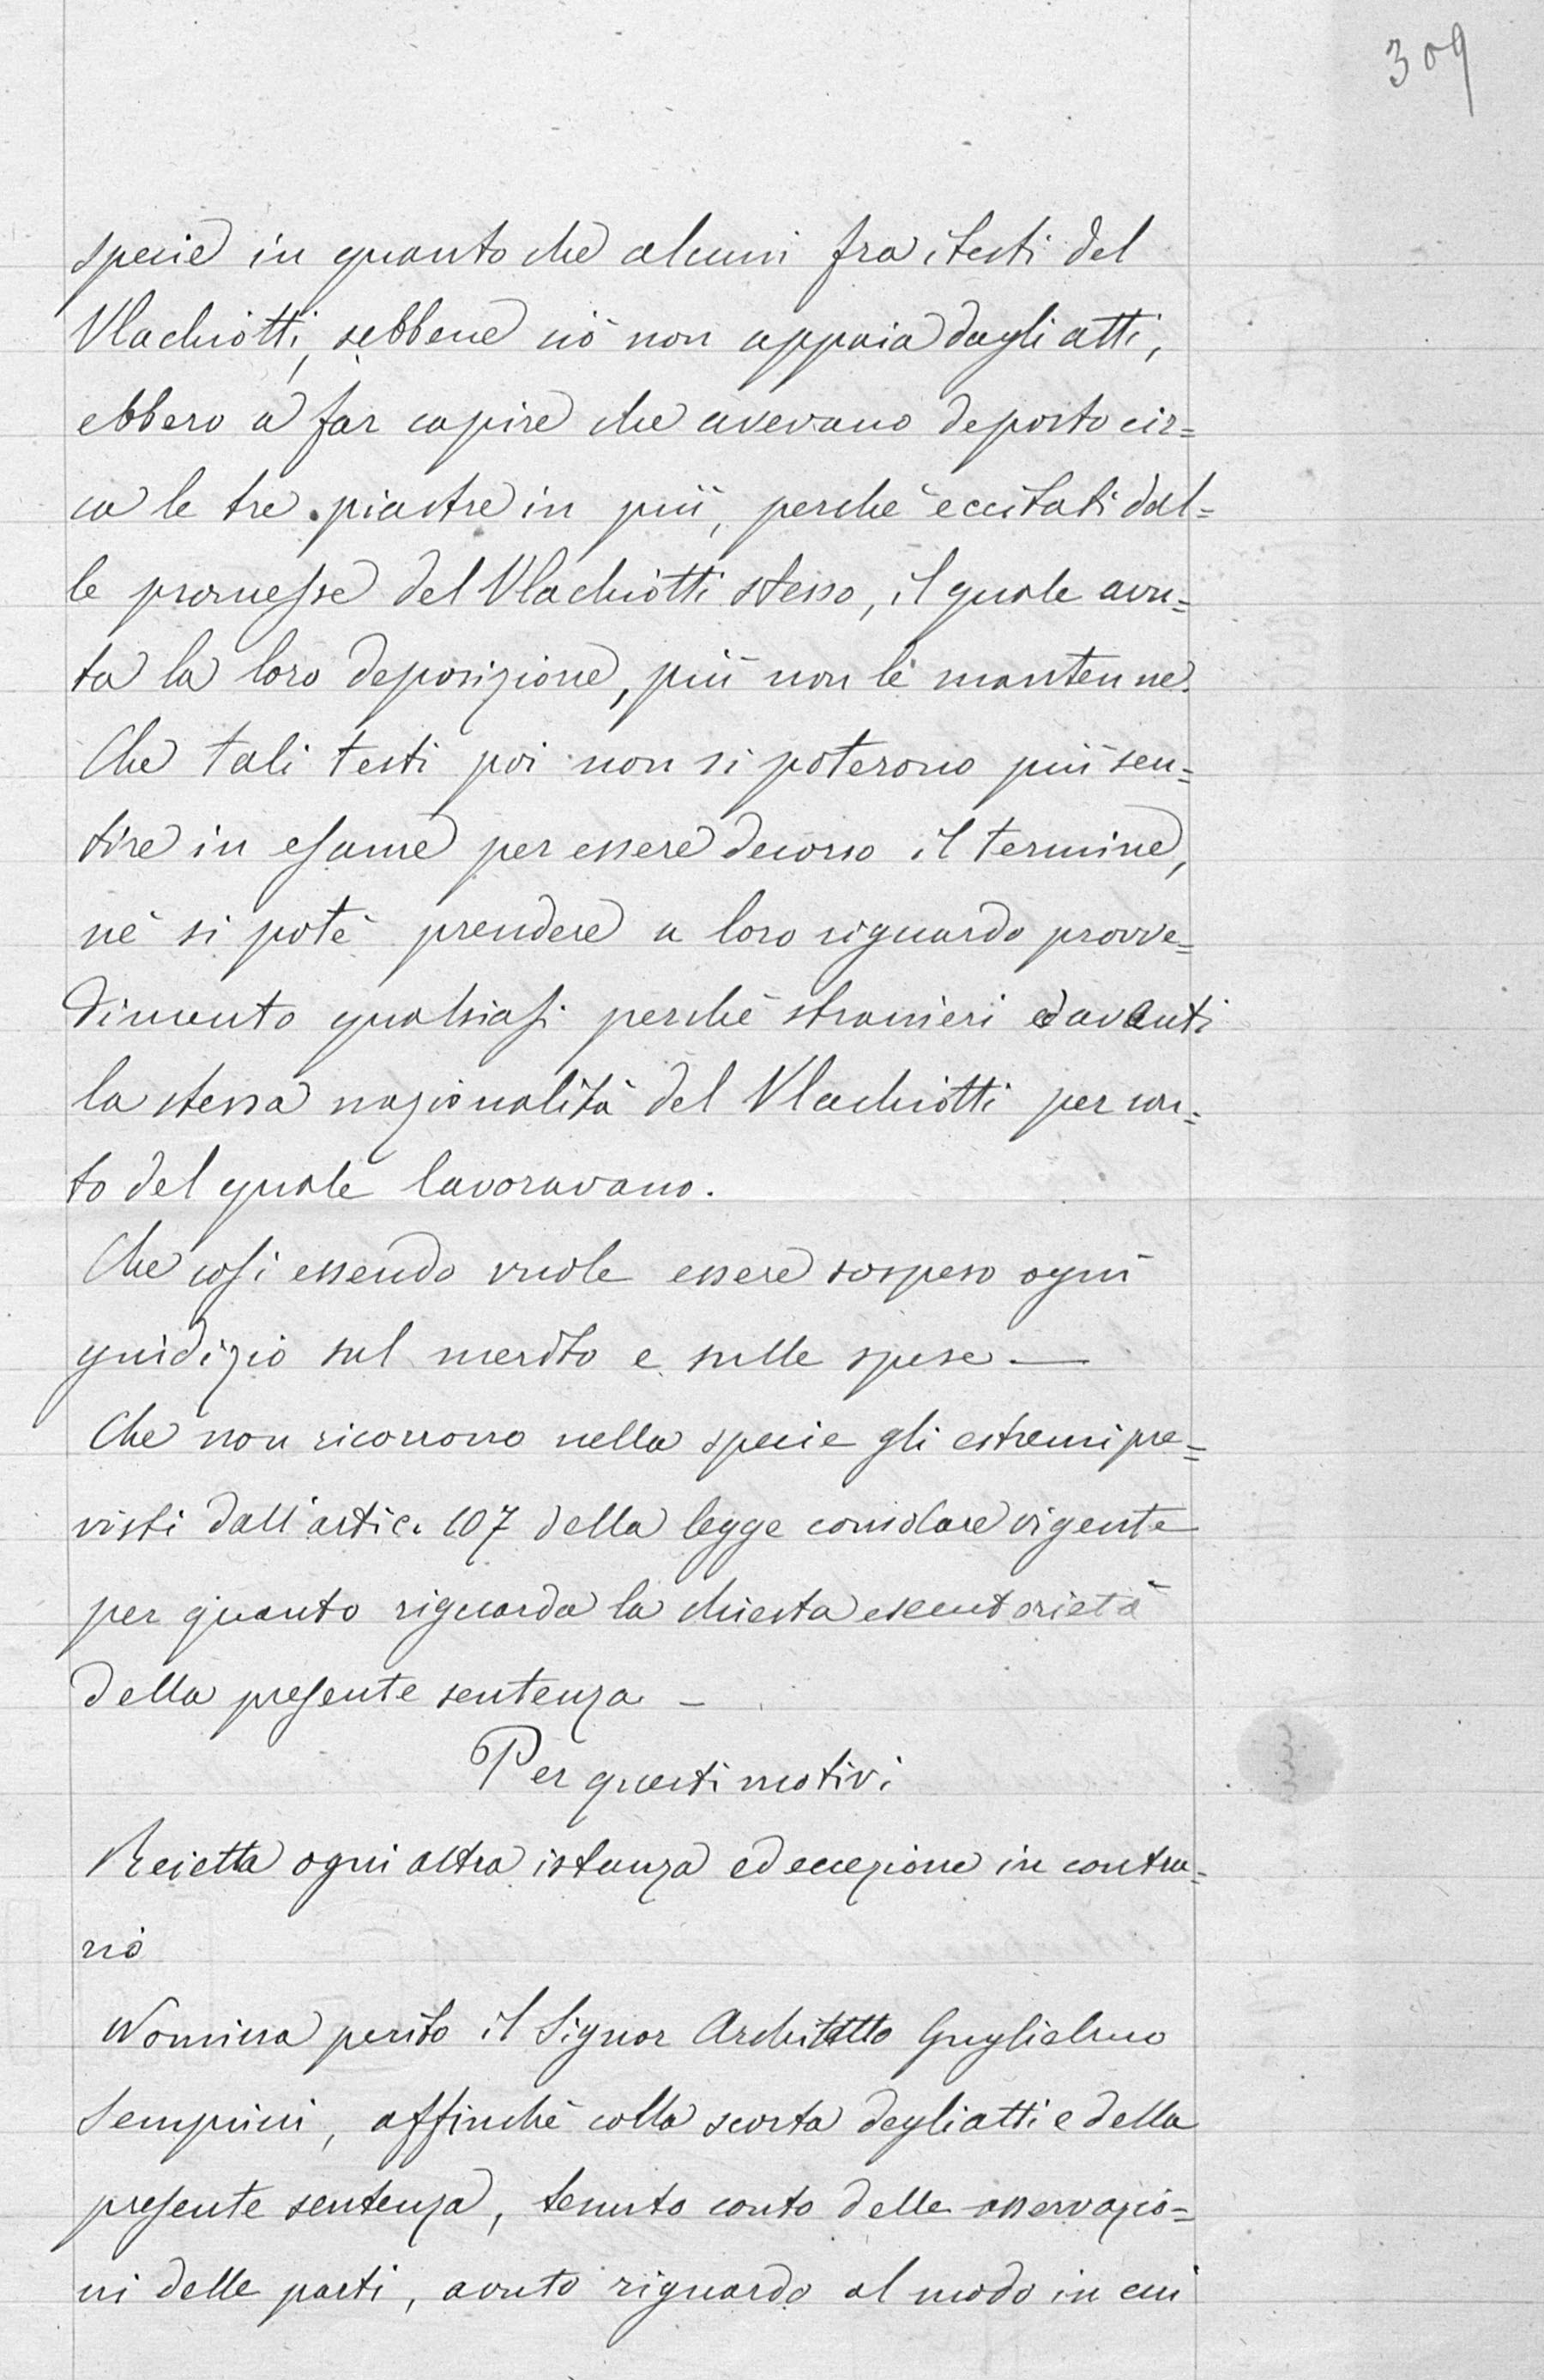 309
specie in quanto che alcuni fra i testi del
Vlachiotti, sebbene ciò non appaia dagli atti,
ebbero a far capire che avevano deposto cir=
ca le tre piastre in più, perchè eccitati dal=
le promesse del Vlachiotti stesso, il quale avu=
ta la loro deposizione, più non le mantenne.
Che tali testi poi non si poterono più sen=
tire in esame per essere decorso il termine,
nè si potè prendere a loro riguardo provve=
dimento qualsiasi perchè stranieri ed aventi
la stessa nazionalità del Vlachiotti per con=
to del quale lavoravano.
Che così essendo vuole essere sospeso ogni
giudizio sul merito e sulle spese —
Che non ricorrono nella specie gli estremi pre=
visti dall'artic. 107 della legge consolare vigente
per quanto riguarda la chiesta esecutorietà
della presente sentenza –
Per questi motivi
Reietta ogni altra istanza ed eccezione in contra=
rio
Nomina perito il Signor Architetto Guglielmo
Semprini, affinchè colla scorta degli atti e della
presente sentenza, tenuto conto delle osservazio=
ni delle parti, avuto riguardo al modo in cui